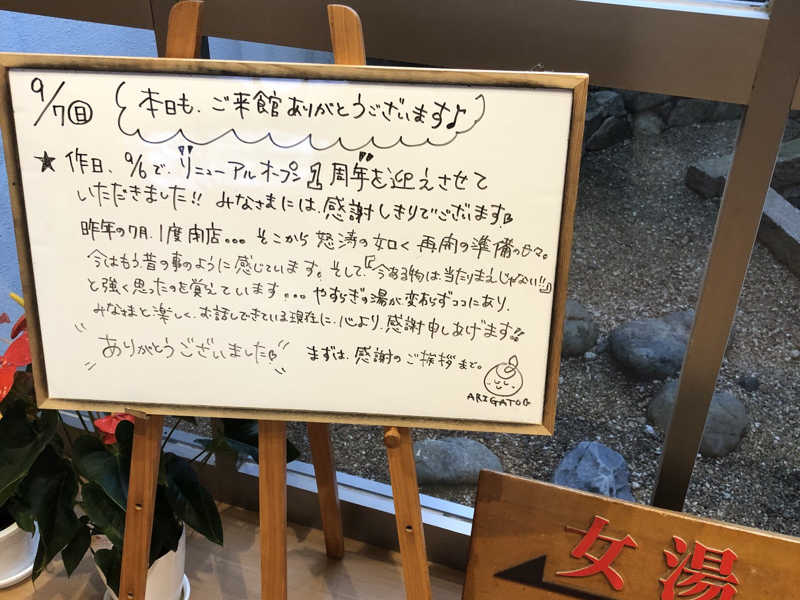 9/7(日) 本日も、ご来館ありがとうございます♪
★ 作日、9/6で、"リニューアルオープン1周年"を迎えさせて
いただきました!! みなさまには、感謝しきりでございます
昨年の7月、1度閉店。。。そこから怒涛の如く再開の準備の日々。
今はもう昔の事のように感じています。そして「今ある物は当たりまえじゃない!!」
と強く思ったのを覚えています。。。やすらぎの湯が変わらずココにあり、
みなさまと楽しく、お話しできている現在に、心より、感謝申しあげます!!
ありがとうございました まずは、感謝のご挨拶まで。
ARIGATOG
女湯